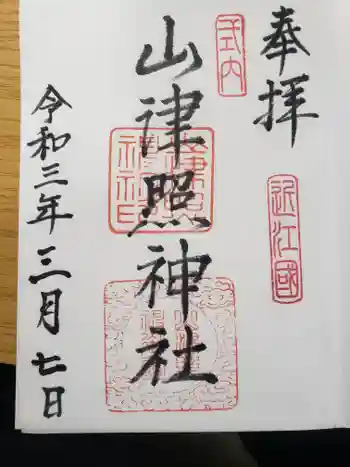 奉拝
近江國
式内
山津照神社
令和三年三月七日